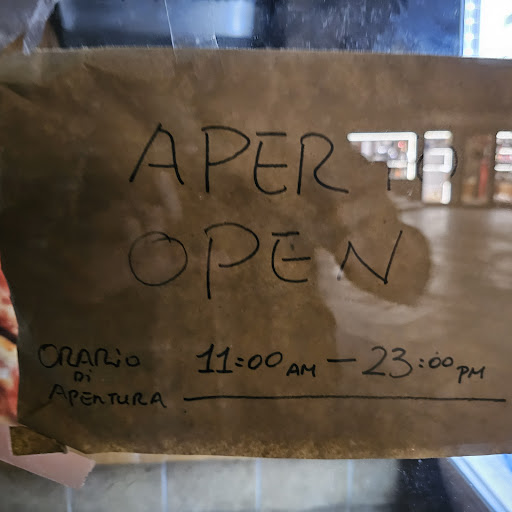 APERTO
OPEN
ORARIO DI APERTURA 11:00 AM – 23:00 PM